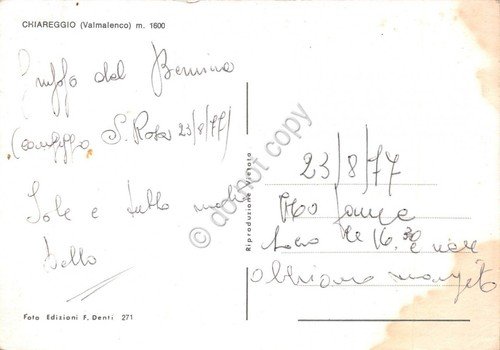 CHIAREGGIO (Valmalenco) m. 1600
Gruppo del Bernina
(campeggio S. Rosa 23/8/77)
Sole e tutto molto
bello
Foto Edizioni F. Denti 271
Riproduzione Vietata
23/8/77
Ho fame
sono le 16.30 e non
abbiamo mangiato
do not copy